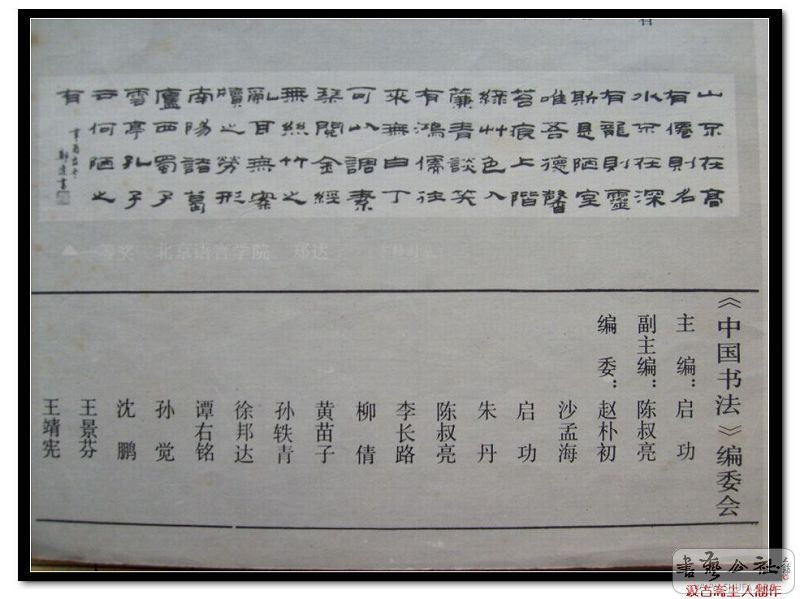 山不在高
有僊則名
水不在深
有龍則靈
斯是陋室
唯吾德馨
苔痕上階
綠艸色入
簾青談笑
有鴻儒往
來無白丁
可以調素
琴閱金經
無絲竹之
亂耳無案
牘之勞形
南陽諸葛
廬西蜀子
雲亭孔子
云何陋之
有
一等奖 北京语言学院 郑达
《中国书法》编委会
主 编：启 功
副主编：陈叔亮
编 委：赵朴初
沙孟海
启 功
朱 丹
陈叔亮
李长路
柳 倩
黄苗子
孙轶青
徐邦达
谭右铭
孙 觉
沈 鹏
王景芬
王靖宪
書藝公社
汲古斋主人制作